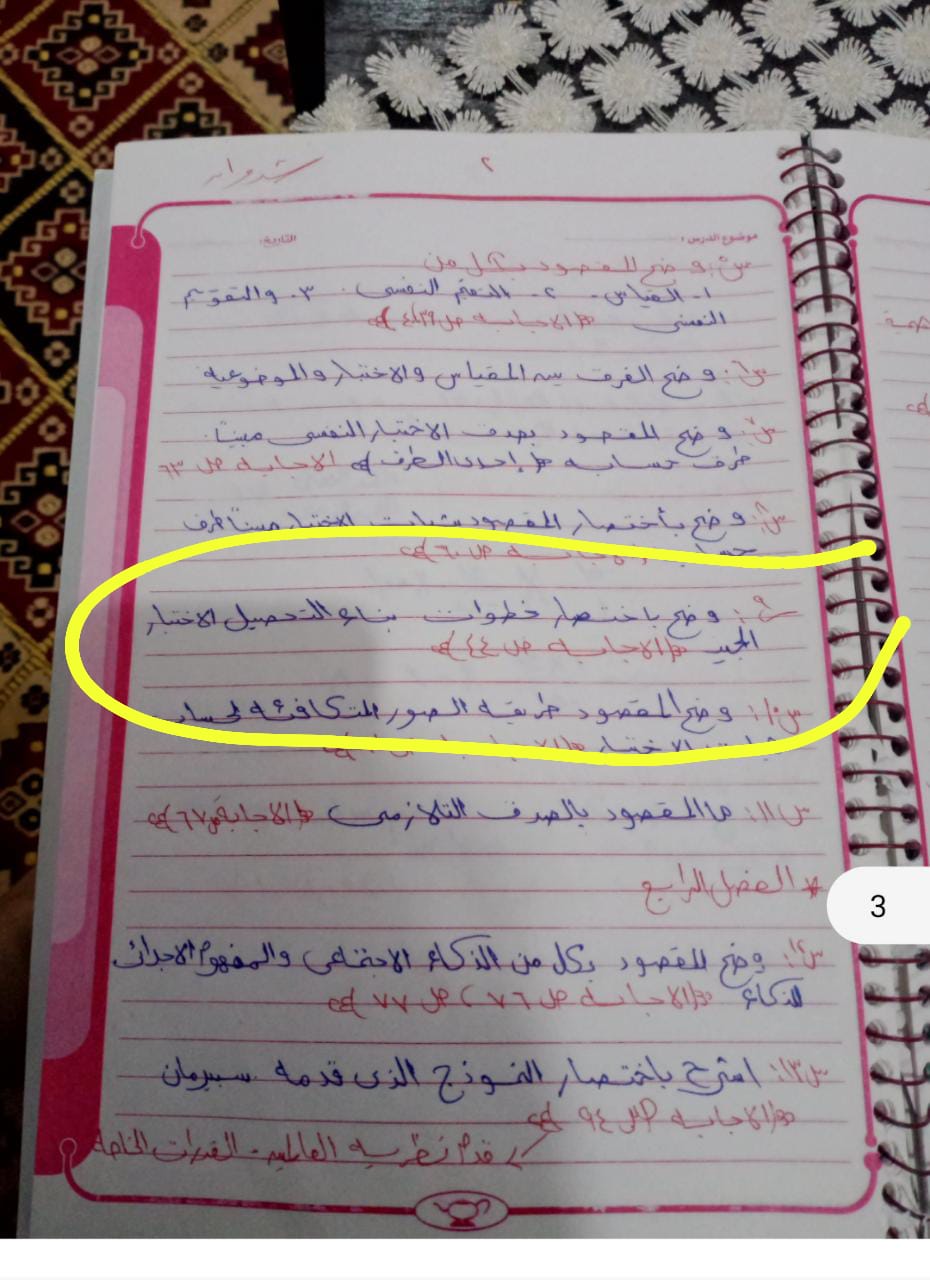 ٢
موضوع الدرس :
التاريخ:
س٥: وضح المقصود بكل من
١- القياس - ٢- التقيم النفسى. ٣- والتقويم
النفسى (الاجابة ص
س٦: وضح الفرق بين المقياس والاختبار والموضوعيه
س٧: وضح المقصود بصدق الاختبار النفسى مبيناً
طرق حسابه (إحدى الطرق) الاجابة ص ٦٣
س٨: وضح بأختصار المقصود بثبات الاختبار مبيناً طرق
الاجابة ص ٦٠)
س٩: وضح باختصار خطوات بناء التحصيل الاختبار
الجيد (الاجابة ص ٤٤)
س١٠: وضح المقصود طريقة الصور المتكافئه لحساب
ثبات الاختبار
س١١: ما المقصود بالصدق التلازمى (الاجابة ص ٦٧)
* الفصل الرابع
س١٢: وضح المقصود بكل من الذكاء الاجتماعى والمفهوم الاجرائى
للذكاء (الاجابة ص ٧٦، ص ٧٧)
س١٣: اشرح باختصار النموذج الذى قدمه سبيرمان
(الاجابة ص ٩٤)
قدم نظريه العاملين - القدرات الخاصة
3